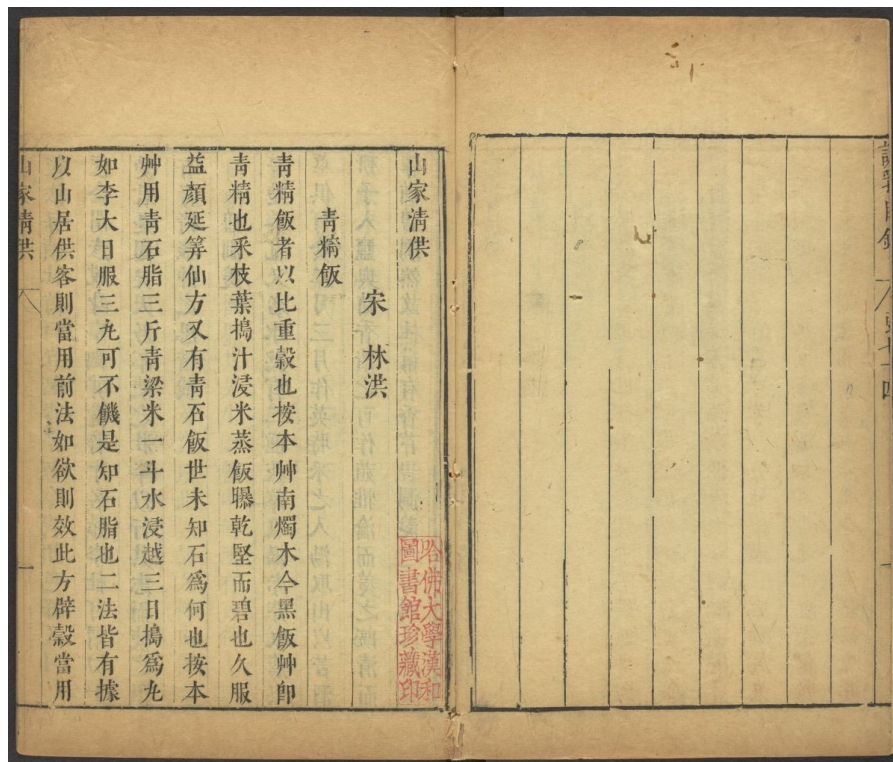 山家清供
宋　林洪
青精飯
青精飯者以比重穀也按本艸南燭木今黑飯艸卽
青精也采枝葉搗汁浸米蒸飯曝乾堅而碧也久服
益顏延筭仙方又有青石飯世未知石爲何也按本
艸用青石脂三斤青梁米一斗水浸越三日搗爲丸
如李大日服三丸可不饑是知石脂也二法皆有據
以山居供客則當用前法如欲則效此方辟穀當用
山家清供
一
哈佛大學漢和
圖書館珍藏印